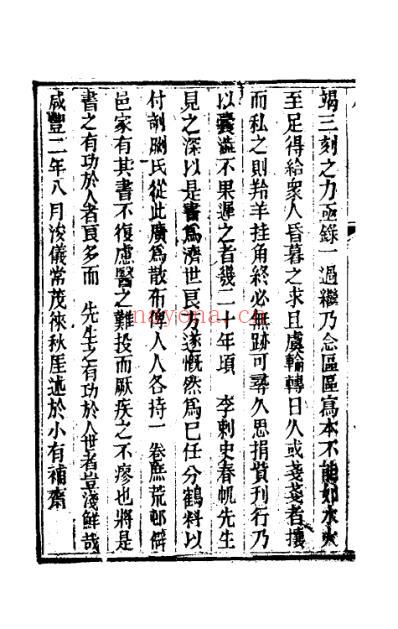 竭三刻之力亟錄一過繼乃念區區寫本不能如水火
至足得給衆人昏暮之求且虞輪轉日久或戔戔者攘
而私之則羚羊挂角終必無跡可尋久思捐貲刊行乃
以囊澁不果遲之者幾二十年頃 李刺史春帆先生
見之深以是書爲濟世良方遂慨然爲已任分鶴料以
付剞劂氏從此廣爲散布俾人人各持一卷庶荒邨僻
邑家有其書不復慮醫之難投而厭疾之不瘳也將是
書之有功於人者良多而 先生之有功於人世者豈淺鮮哉
咸豐二年八月浚儀常茂徠秋厓述於小有補齋
nayona.cn